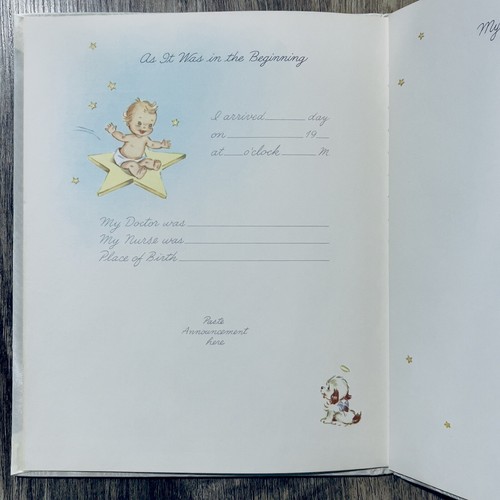 As It Was in the Beginning
I arrived________ day
on__________ 19__
at____o'clock_____M
My Doctor was______________________
My Nurse was______________________
Place of Birth______________________
Paste
Announcement
here
My